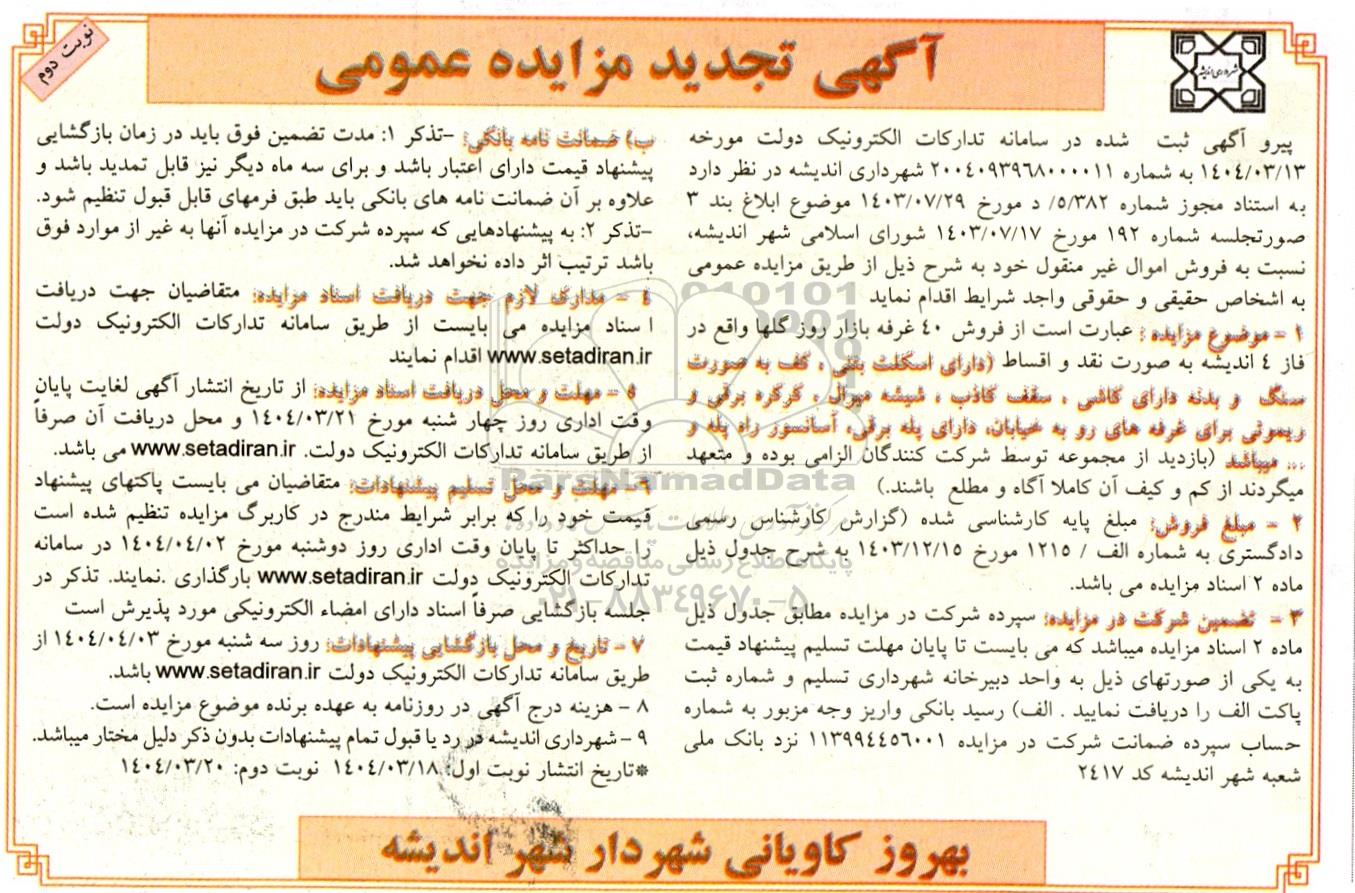 نوبت دوم
آگهی تجدید مزایده عمومی
شهرداری اندیشه
پیرو آگهی ثبت شده در سامانه تدارکات الکترونیک دولت مورخه
۱۴۰۴/۰۳/۱۳ به شماره ۲۰۰۴۰۹۳۹۶۸۰۰۰۰۱۱ شهرداری اندیشه در نظر دارد
به استناد مجوز شماره ۵/۳۸۲/ د مورخ ۱۴۰۳/۰۷/۲۹ موضوع ابلاغ بند ۳
صورتجلسه شماره ۱۹۲ مورخ ۱۴۰۳/۰۷/۱۷ شورای اسلامی شهر اندیشه،
نسبت به فروش اموال غیر منقول خود به شرح ذیل از طریق مزایده عمومی
به اشخاص حقیقی و حقوقی واجد شرایط اقدام نماید
۱ – موضوع مزایده : عبارت است از فروش ۴۰ غرفه بازار روز گلها واقع در
فاز ۴ اندیشه به صورت نقد و اقساط (دارای اسکلت بتنی ، کف به صورت
سنگ و بدنه دارای کاشی ، سقف کاذب ، شیشه میرال ، کرکره برقی و
ریموتی برای غرفه های رو به خیابان، دارای پله برقی، آسانسور راه پله و
... میباشد (بازدید از مجموعه توسط شرکت کنندگان الزامی بوده و متعهد
میگردند از کم و کیف آن کاملا آگاه و مطلع باشند.)
۲ – مبلغ فروش: مبلغ پایه کارشناسی شده (گزارش کارشناس رسمی
دادگستری به شماره الف / ۱۲۱۵ مورخ ۱۴۰۳/۱۲/۱۵ به شرح جدول ذیل
ماده ۲ اسناد مزایده می باشد.
۳ – تضمین شرکت در مزایده: سپرده شرکت در مزایده مطابق جدول ذیل
ماده ۲ اسناد مزایده میباشد که می بایست تا پایان مهلت تسلیم پیشنهاد قیمت
به یکی از صورتهای ذیل به واحد دبیرخانه شهرداری تسلیم و شماره ثبت
پاکت الف را دریافت نمایید . الف) رسید بانکی واریز وجه مزبور به شماره
حساب سپرده ضمانت شرکت در مزایده ۱۱۳۹۹۴۴۵۶۰۰۱ نزد بانک ملی
شعبه شهر اندیشه کد ۲۴۱۷
ب) ضمانت نامه بانکی: –تذکر ۱: مدت تضمین فوق باید در زمان بازگشایی
پیشنهاد قیمت دارای اعتبار باشد و برای سه ماه دیگر نیز قابل تمدید باشد و
علاوه بر آن ضمانت نامه های بانکی باید طبق فرمهای قابل قبول تنظیم شود.
–تذکر ۲: به پیشنهادهایی که سپرده شرکت در مزایده آنها به غیر از موارد فوق
باشد ترتیب اثر داده نخواهد شد.
۴ – مدارک لازم جهت دریافت اسناد مزایده: متقاضیان جهت دریافت
ا سناد مزایده می بایست از طریق سامانه تدارکات الکترونیک دولت
www.setadiran.ir اقدام نمایند
۵ – مهلت و محل دریافت اسناد مزایده: از تاریخ انتشار آگهی لغایت پایان
وقت اداری روز چهار شنبه مورخ ۱۴۰۴/۰۳/۲۱ و محل دریافت آن صرفاً
از طریق سامانه تدارکات الکترونیک دولت. www.setadiran.ir می باشد.
۶– مهلت و محل تسلیم پیشنهادات: متقاضیان می بایست پاکتهای پیشنهاد
قیمت خود را که برابر شرایط مندرج در کاربرگ مزایده تنظیم شده است
را حداکثر تا پایان وقت اداری روز دوشنبه مورخ ۱۴۰۴/۰۴/۰۲ در سامانه
تدارکات الکترونیک دولت www.setadiran.ir بارگذاری .نمایند. تذکر در
جلسه بازگشایی صرفاً اسناد دارای امضاء الکترونیکی مورد پذیرش است
۷ – تاریخ و محل بازگشایی پیشنهادات: روز سه شنبه مورخ ۱۴۰۴/۰۴/۰۳ از
طریق سامانه تدارکات الکترونیک دولت www.setadiran.ir باشد.
۸ – هزینه درج آگهی در روزنامه به عهده برنده موضوع مزایده است.
۹ – شهرداری اندیشه در رد یا قبول تمام پیشنهادات بدون ذکر دلیل مختار میباشد.
*تاریخ انتشار نوبت اول: ۱۴۰۴/۰۳/۱۸ نوبت دوم: ۱۴۰۴/۰۳/۲۰
ParsNamadData
پایگاه اطلاع رسانی مناقصه و مزایده
۰۲۱-۸۸۳۴۹۶۷۰-۵
بهروز کاویانی شهردار شهر اندیشه